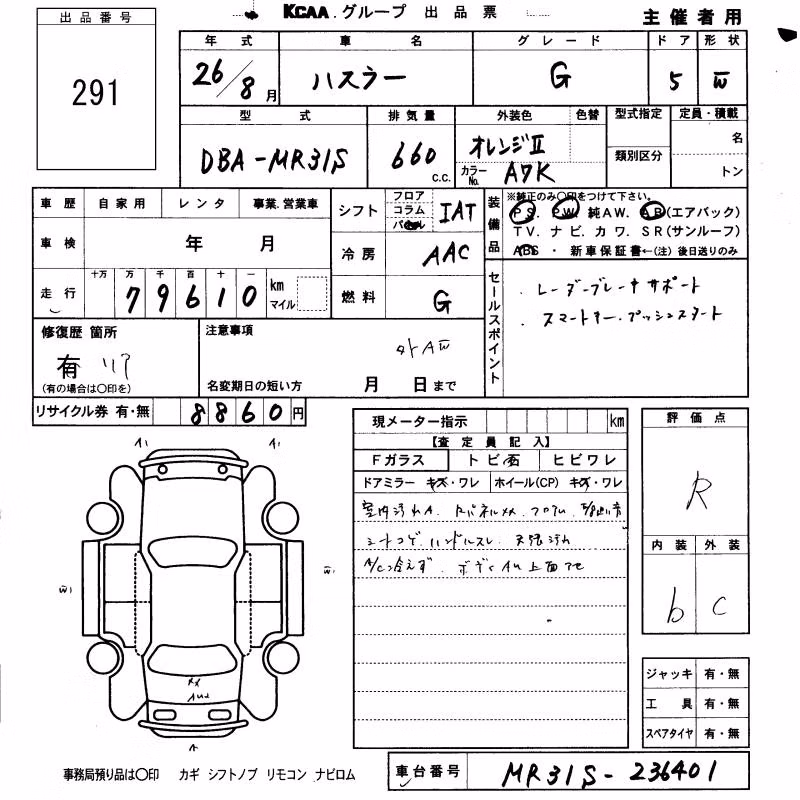 KCAA.グループ 出品票
主催者用
出品番号
291
年式 車名 グレード ドア 形状
26/8月 ハスラー G 5 W
型式 排気量 外装色 色替 型式指定 定員・積載
DBA-MR31S 660 c.c. オレンジⅡ 類別区分 名
カラーNo. A7K トン
車歴 自家用 レンタ 事業.営業車
車検 年 月
走行 十万 万 千 百 十 一 km マイル
79610
シフト フロア コラム パネル IAT
冷房 AAC
燃料 G
装備品 ※純正のみ○印をつけて下さい。
PS. PW. 純AW. AB(エアバック)
TV. ナビ. カワ. SR(サンルーフ)
ABS ・ 新車保証書←(注)後日送りのみ
セールスポイント
・レーダーブレーキサポート
・スマートキー・プッシュスタート
修復歴 箇所
有 リア
(有の場合は○印を)
注意事項
外AW
名変期日の短い方 月 日まで
リサイクル券 有・無 8860円
現メーター指示 km
【査定員記入】
Fガラス トビ石 ヒビワレ
ドアミラー キズ・ワレ ホイール(CP) キズ・ワレ
室内汚れA.
シートコゲ. ハンドルスレ. 天張汚れ
A/C冷えず. ボディ 上面
評価点
R
内装 外装
b C
A1 A1
W1 W1
XX
AU2
A
ジャッキ 有・無
工具 有・無
スペアタイヤ 有・無
事務局預り品は○印 カギ シフトノブ リモコン ナビロム
車台番号 MR31S-236401